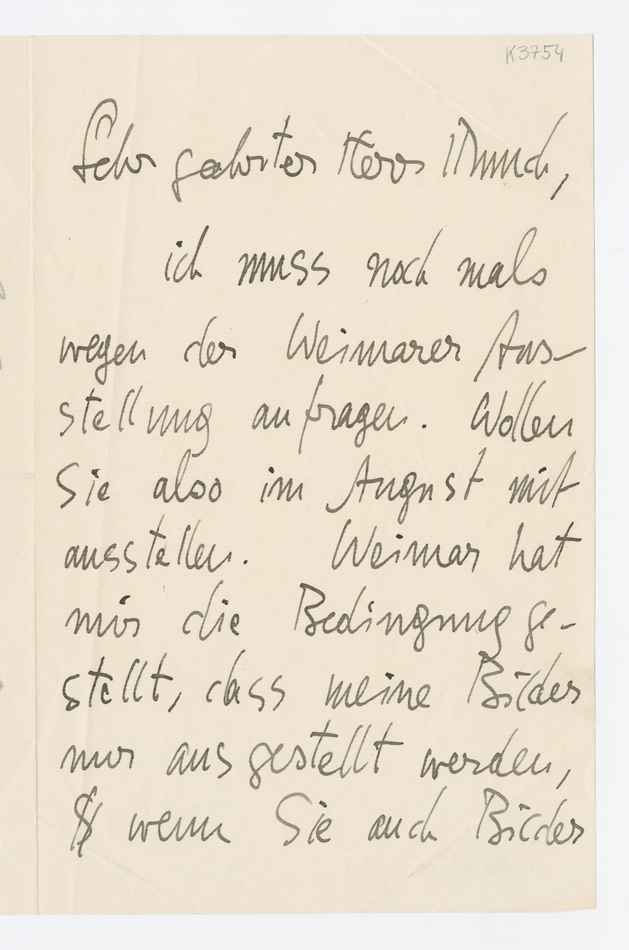 K3754
Sehr geehrter Herr Munch,
ich muss noch mals
wegen der Weimarer Aus-
stellung anfragen. Wollen
Sie also im August mit
ausstellen. Weimar hat
mir die Bedingung ge-
stellt, dass meine Bilder
nur ausgestellt werden,
wenn Sie auch Bilder